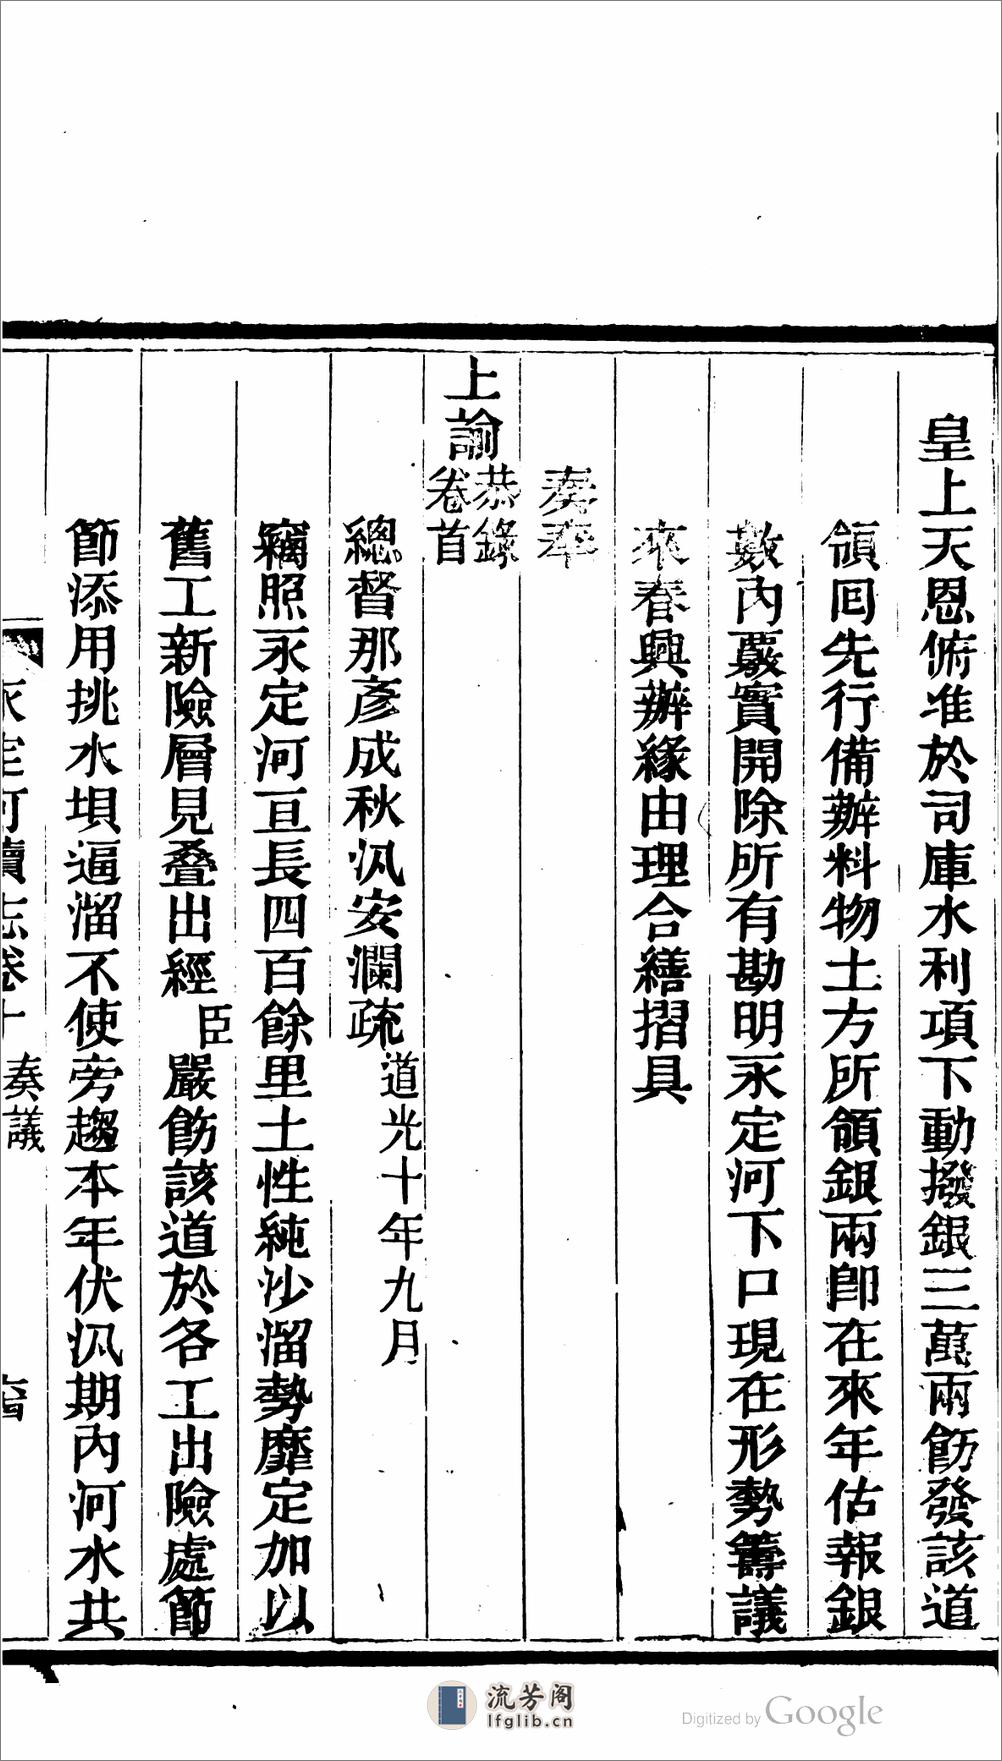 皇上天恩俯准於司庫水利項下動撥銀三萬兩飭發該道
領囘先行備辦料物土方所領銀兩卽在來年估報銀
數內覈實開除所有勘明永定河下口現在形勢籌議
來春興辦緣由理合繕摺具
奏奉
上諭恭錄卷首
總督那彥成秋汛安瀾疏道光十年九月
竊照永定河亘長四百餘里土性純沙溜勢靡定加以
舊工新險層見叠出經臣嚴飭該道於各工出險處節
節添用挑水垻逼溜不使旁趨本年伏汛期內河水共
永定河續志卷十 奏議
流芳阁
lfglib.cn
Digitized by Google